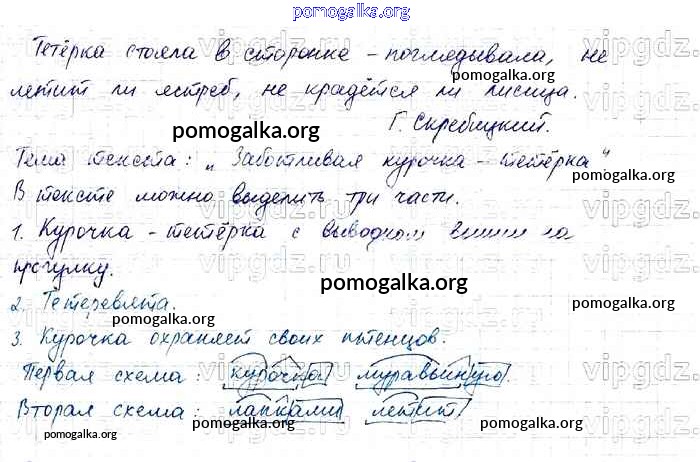 pomogalka.org
Тетёрка стояла в сторонке - поглядывала, не
летит ли ястреб, не крадётся ли лисица.
Г. Скребицкий.
Тема текста: „Заботливая курочка - тетёрка"
В тексте можно выделить три части.
1. Курочка - тетёрка с выводком вышли на
прогулку.
2. Тетеревята.
3. Курочка охраняет своих птенцов.
Первая схема: курочка муравьиную.
Вторая схема: лапками летит
pomogalka.org
pomogalka.org
pomogalka.org
pomogalka.org
pomogalka.org
pomogalka.org
pomogalka.org
pomogalka.org
pomogalka.org
vipgdz.ru